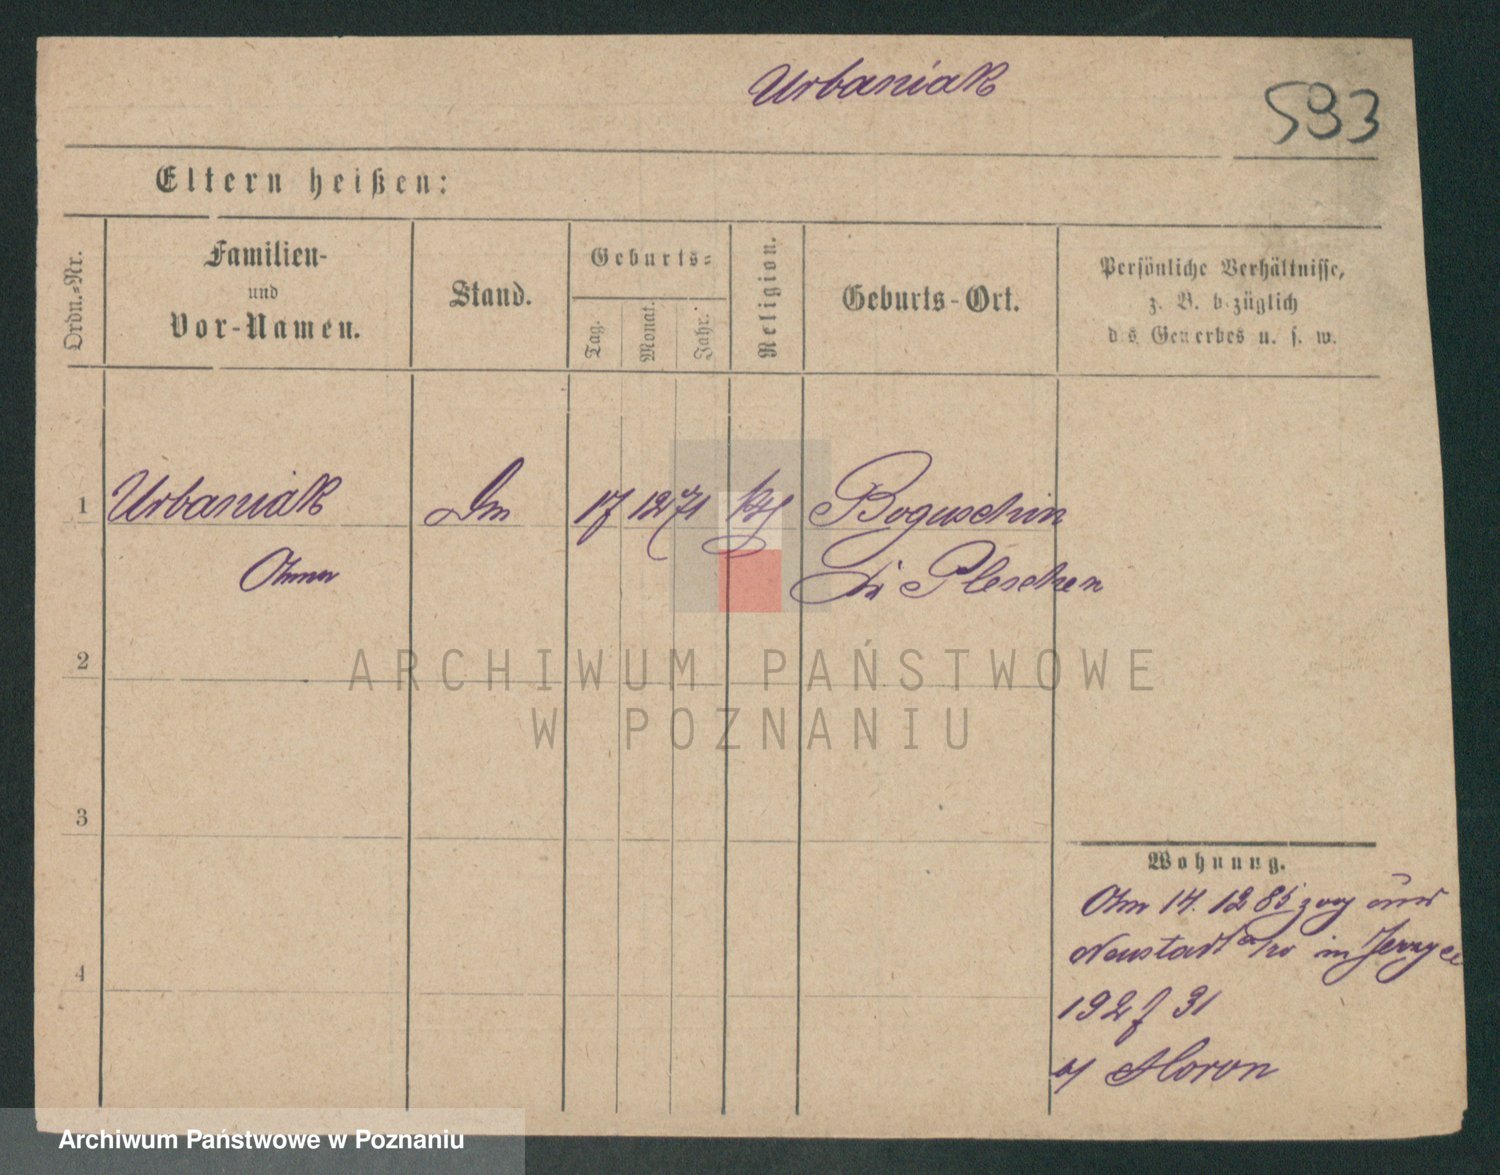 Urbaniak
593
Eltern heißen:
Ordn.-Nr.
Familien-
und
Vor-Namen.
Stand.
Geburts-
Tag.
Monat.
Jahr.
Religion.
Geburts-Ort.
Persönliche Verhältnisse,
z. B. bezüglich
des Gewerbes u. s. w.
1
Urbaniak
17 12 71
Boguschin
Pleschen
2
ARCHIWUM PAŃSTWOWE
W POZNANIU
3
Wohnung.
14. 12 85 zog
Neustadt in
4
31
Archiwum Państwowe w Poznaniu